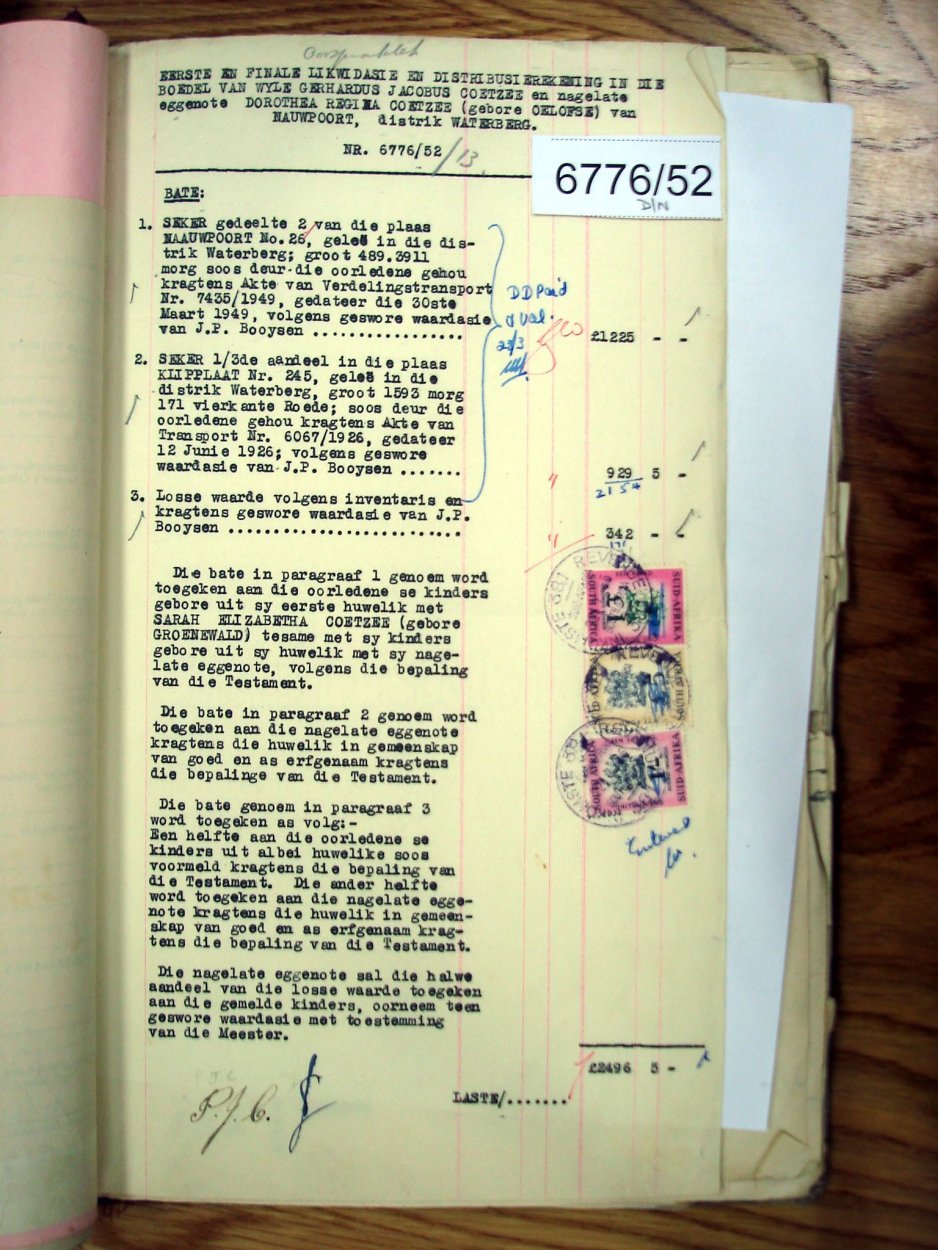 Oorspronklik
EERSTE EN FINALE LIKWIDASIE EN DISTRIBUSIEREKENING IN DIE
BOEDEL VAN WYLE GERHARDUS JACOBUS COETZEE en nagelate
eggenote DOROTHEA REGINA COETZEE (gebore OELOFSE) van
NAUWPOORT, distrik WATERBERG.
NR. 6776/52/13
6776/52
D/N
BATE:
1. SEKER gedeelte 2 van die plaas
NAAUWPOORT No.26, geleë in die dis-
trik Waterberg; groot 489.3911
morg soos deur die oorledene gehou
kragtens Akte van Verdelingstransport
Nr. 7435/1949, gedateer die 30ste
Maart 1949, volgens geswore waardasie
van J.P. Booysen ................. £1225 - -
DD Paid
Val.
23/3
2. SEKER 1/3de aandeel in die plaas
KLIPPLAAT Nr. 245, geleë in die
distrik Waterberg, groot 1593 morg
171 vierkante Roede; soos deur die
oorledene gehou kragtens Akte van
Transport Nr. 6067/1926, gedateer
12 Junie 1926; volgens geswore
waardasie van J.P. Booysen ....... " 929 5 -
2154
3. Losse waarde volgens inventaris en
kragtens geswore waardasie van J.P.
Booysen .......................... " 342 - -
Die bate in paragraaf 1 genoem word
toegeken aan die oorledene se kinders
gebore uit sy eerste huwelik met
SARAH ELIZABETHA COETZEE (gebore
GROENEWALD) tesame met sy kinders
gebore uit sy huwelik met sy nage-
late eggenote, volgens die bepaling
van die Testament.
Die bate in paragraaf 2 genoem word
toegeken aan die nagelate eggenote
kragtens die huwelik in gemeenskap
van goed en as erfgenaam kragtens
die bepalinge van die Testament.
Die bate genoem in paragraaf 3
word toegeken as volg:-
Een helfte aan die oorledene se
kinders uit albei huwelike soos
voormeld kragtens die bepaling van
die Testament. Die ander helfte
word toegeken aan die nagelate egge-
note kragtens die huwelik in gemeen-
skap van goed en as erfgenaam krag-
tens die bepaling van die Testament.
Die nagelate eggenote sal die halwe
aandeel van die losse waarde toegeken
aan die gemelde kinders, oorneem teen
geswore waardasie met toestemming
van die Meester.
REVENUE
SOUTH AFRICA
£1
SUID AFRIKA
REVENUE
SOUTH AFRICA
REVENUE
SOUTH AFRICA
SUID AFRIKA
Entered
£2496 5 -
P.J.C.
LASTE/.......